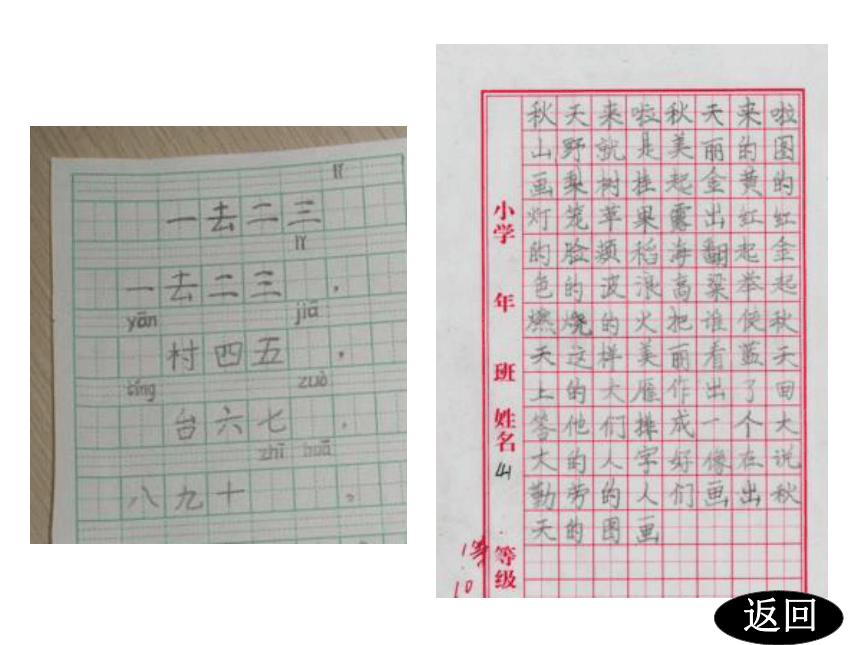 lǐ
一去二三
lǐ
一去二三 ,
yān jiā
村四五 ,
tíng zuò
台六七 ,
zhī huā
八九十 。
秋天来啦秋天来啦
山野就是美丽的图
画梨树挂起金黄的
灯笼苹果露出红红
的脸颊稻海翻起金
色的波浪高粱举起
燃烧的火把谁使秋
天这样美丽看蓝天
上的大雁作出了回
答他们排成一个大
大的人字好像在说
勤劳的人们画出秋
天的图画
小学 年 班 姓名 等级
1等
10
返回